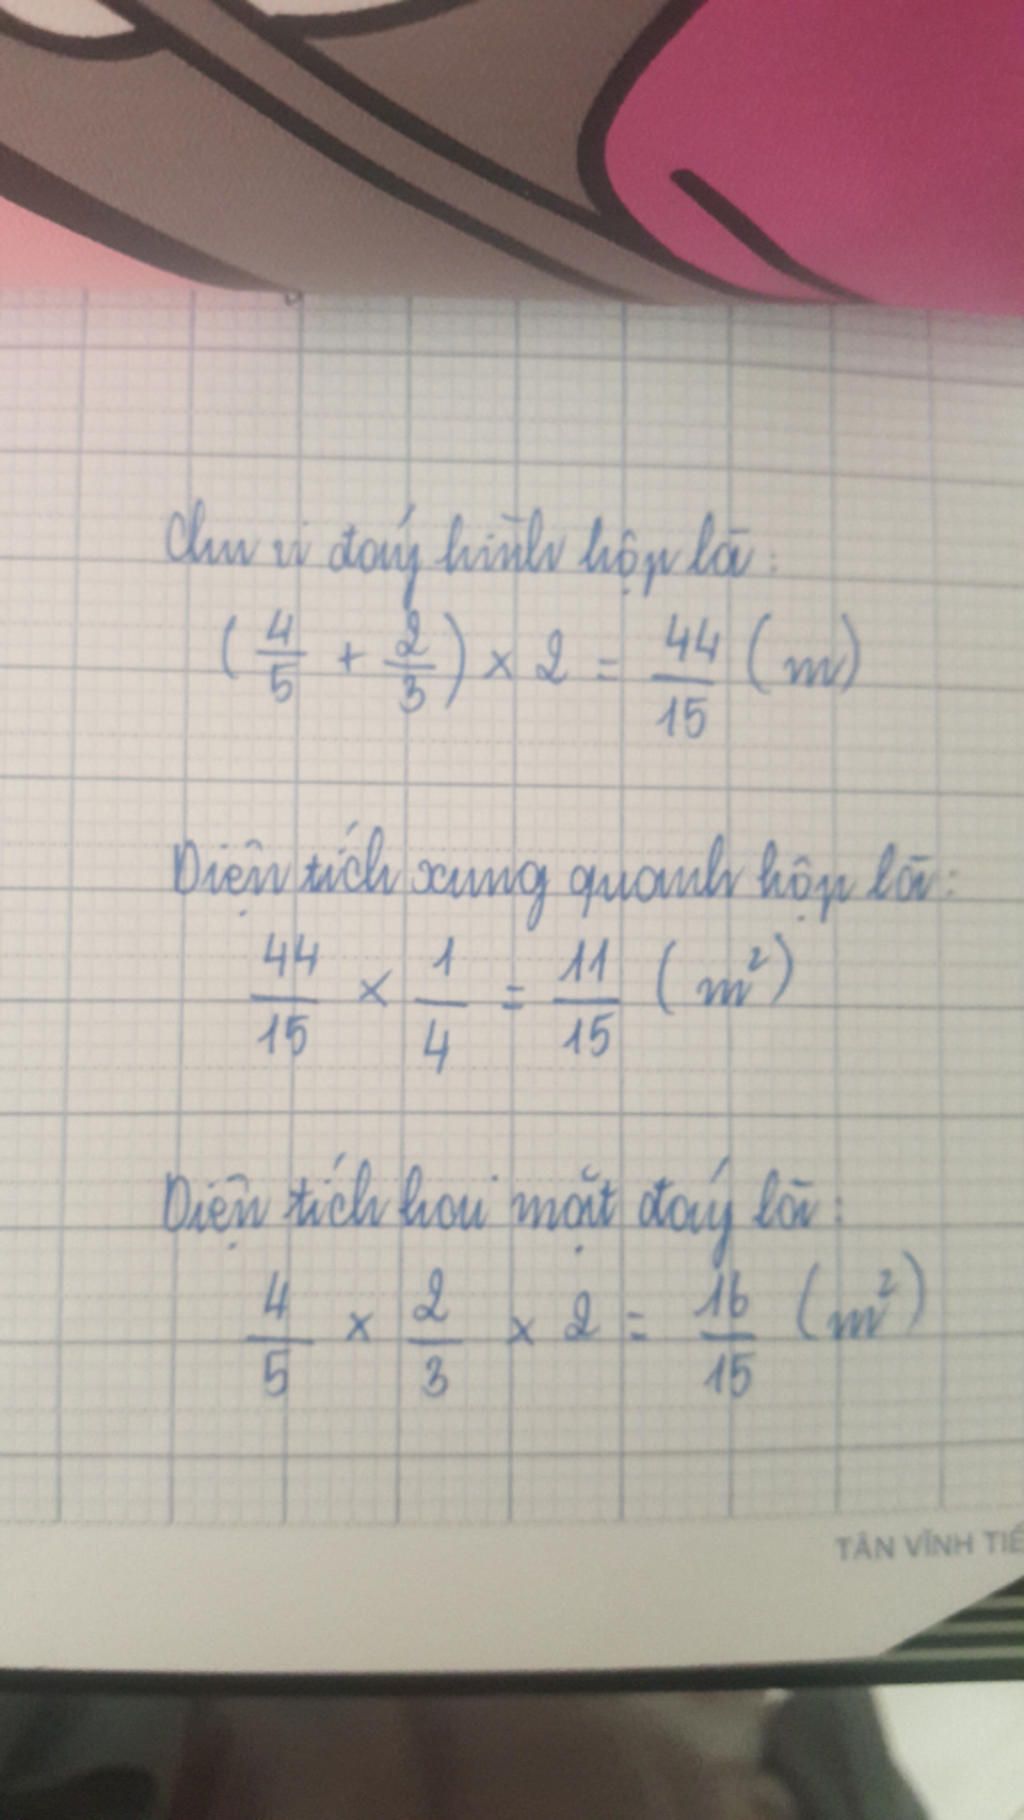 Chu vi đáy hình hộp là:
( 4/5 + 2/3 ) × 2 = 44/15 ( m )
Diện tích xung quanh hộp là:
44/15 × 1/4 = 11/15 ( m² )
Diện tích hai mặt đáy là:
4/5 × 2/3 × 2 = 16/15 ( m² )
TÂN VĨNH